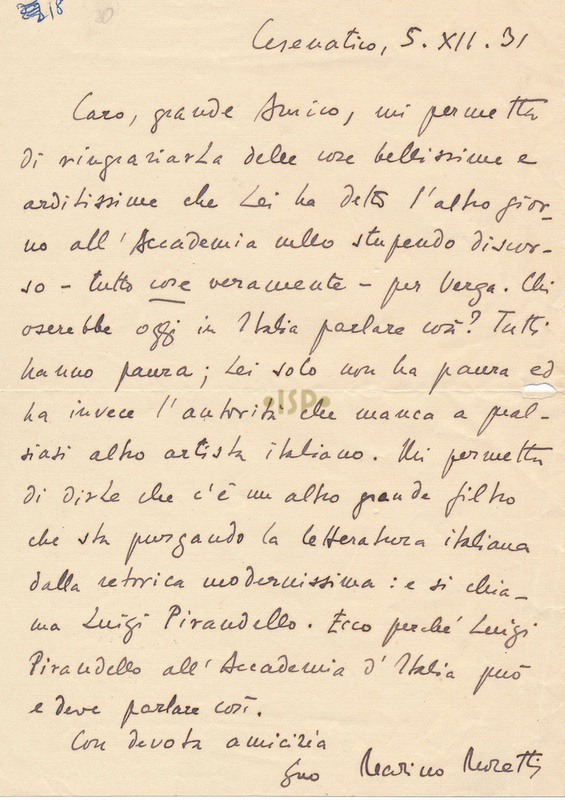 218
20
Cesenatico, 5. XII. 31
Caro, grande Amico, mi permetta
di ringraziarLa delle cose bellissime e
arditissime che Lei ha detto l'altro gior-
no all'Accademia nello stupendo discor-
so - tutto cose veramente - per Verga. Chi
oserebbe oggi in Italia parlare così? Tutti
hanno paura; Lei solo non ha paura ed
ISP
ha invece l'autorità che manca a qual-
siasi altro artista italiano. Mi permetta
di dirLe che c'è un altro grande filtro
che sta purgando la letteratura italiana
dalla retorica modernissima: e si chia-
ma Luigi Pirandello. Ecco perché Luigi
Pirandello all'Accademia d'Italia può
e deve parlare così.
Con devota amicizia
Suo Marino Moretti